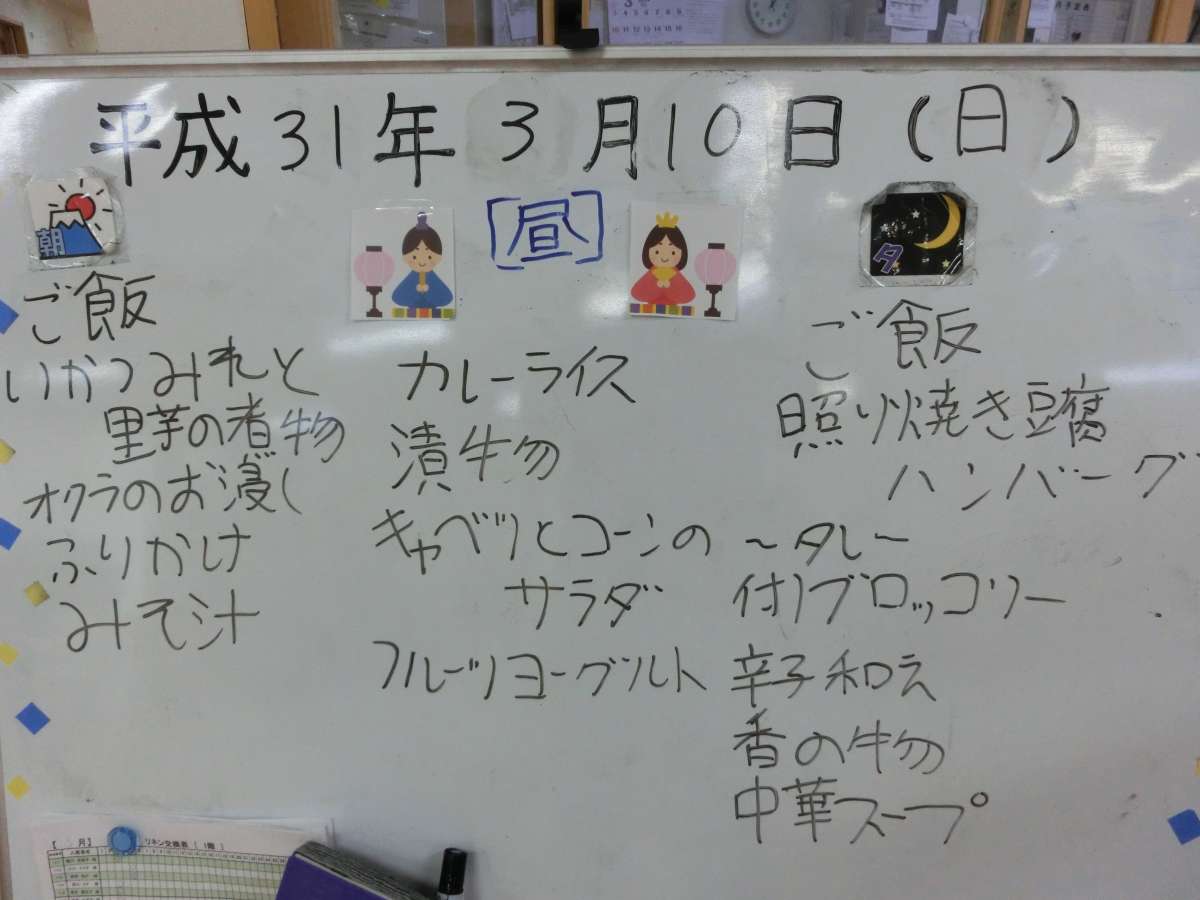 平成31年 3月10日 (日)
朝
ご飯
いかつみれと
里芋の煮物
オクラのお浸し
ふりかけ
みそ汁
[昼]
カレーライス
漬物
キャベツとコーンの
サラダ
フルーツヨーグルト
夕
ご飯
照り焼き豆腐
ハンバーグ
〜タレ〜
付)ブロッコリー
辛子和え
香の物
中華スープ
【 月】 リネン交換表 ( 1階 )